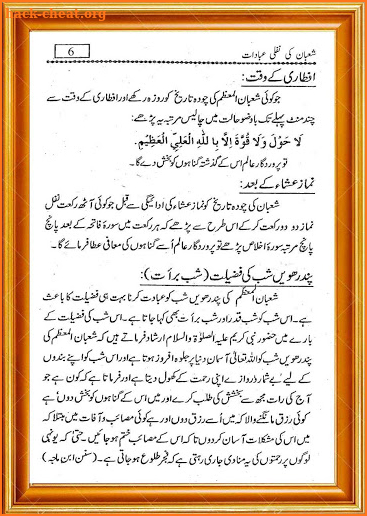 hack-cheat.org
شعبان کی نفلی عبادات
6
افطاری کے وقت:
جو کوئی شعبان المعظم کی چودہ تاریخ کو روزہ رکھے اور افطاری کے وقت سے
چند منٹ پہلے تک باوضو حالت میں چالیس مرتبہ یہ پڑھے:
لَا حَوْلَ وَلَا قُوَّةَ اِلَّا بِاللّٰهِ الْعَلِيِّ الْعَظِيْمِ.
تو پروردگار عالم اس کے گذشتہ گناہوں کو بخش دے گا۔
نماز عشاء کے بعد:
شعبان کی چودہ تاریخ کو نماز عشاء کی ادائیگی سے قبل جو کوئی آٹھ رکعت نفل
نماز دو دو رکعت کر کے اس طرح سے پڑھے کہ ہر رکعت میں سورۂ فاتحہ کے بعد پانچ
پانچ مرتبہ سورۂ اخلاص پڑھے تو پروردگار عالم اُسے گناہوں کی معافی عطا فرمائے گا۔
پندرھویں شب کی فضیلت (شب برأت):
شعبان المعظم کی پندرھویں شب کو عبادت کرنا بہت ہی فضیلت کا باعث
ہے۔ اس شب کو شب قدر اور شب برأت بھی کہا جاتا ہے۔ اس شب کی فضیلت کے
بارے میں حضور نبی کریم علیہ الصلوٰۃ والسلام ارشاد فرماتے ہیں کہ شعبان المعظم کی
پندرھویں شب کو اللہ تعالیٰ آسمان دنیا پر جلوہ افروز ہوتا ہے اور اس شب کو اپنے بندوں
کے لیے بے شمار دروازے اپنی رحمت کے کھول دیتا ہے اور فرماتا ہے کہ کون ہے جو
آج کی رات مجھ سے بخشش کی طلب کرے اور میں اس کے گناہوں کو بخش دوں ہے
کوئی رزق مانگنے والا کہ میں اُسے رزق دوں اور ہے کوئی مصائب و آفات میں مبتلا کہ
میں اس کی مشکلات آسان کر دوں تا کہ اس کے مصائب ختم ہو جائیں۔ حتیٰ کہ یونہی
لوگوں پر رحمتوں کی یہ منادی جاری رہتی ہے کہ فجر طلوع ہو جاتی ہے۔ (سنن ابن ماجہ)